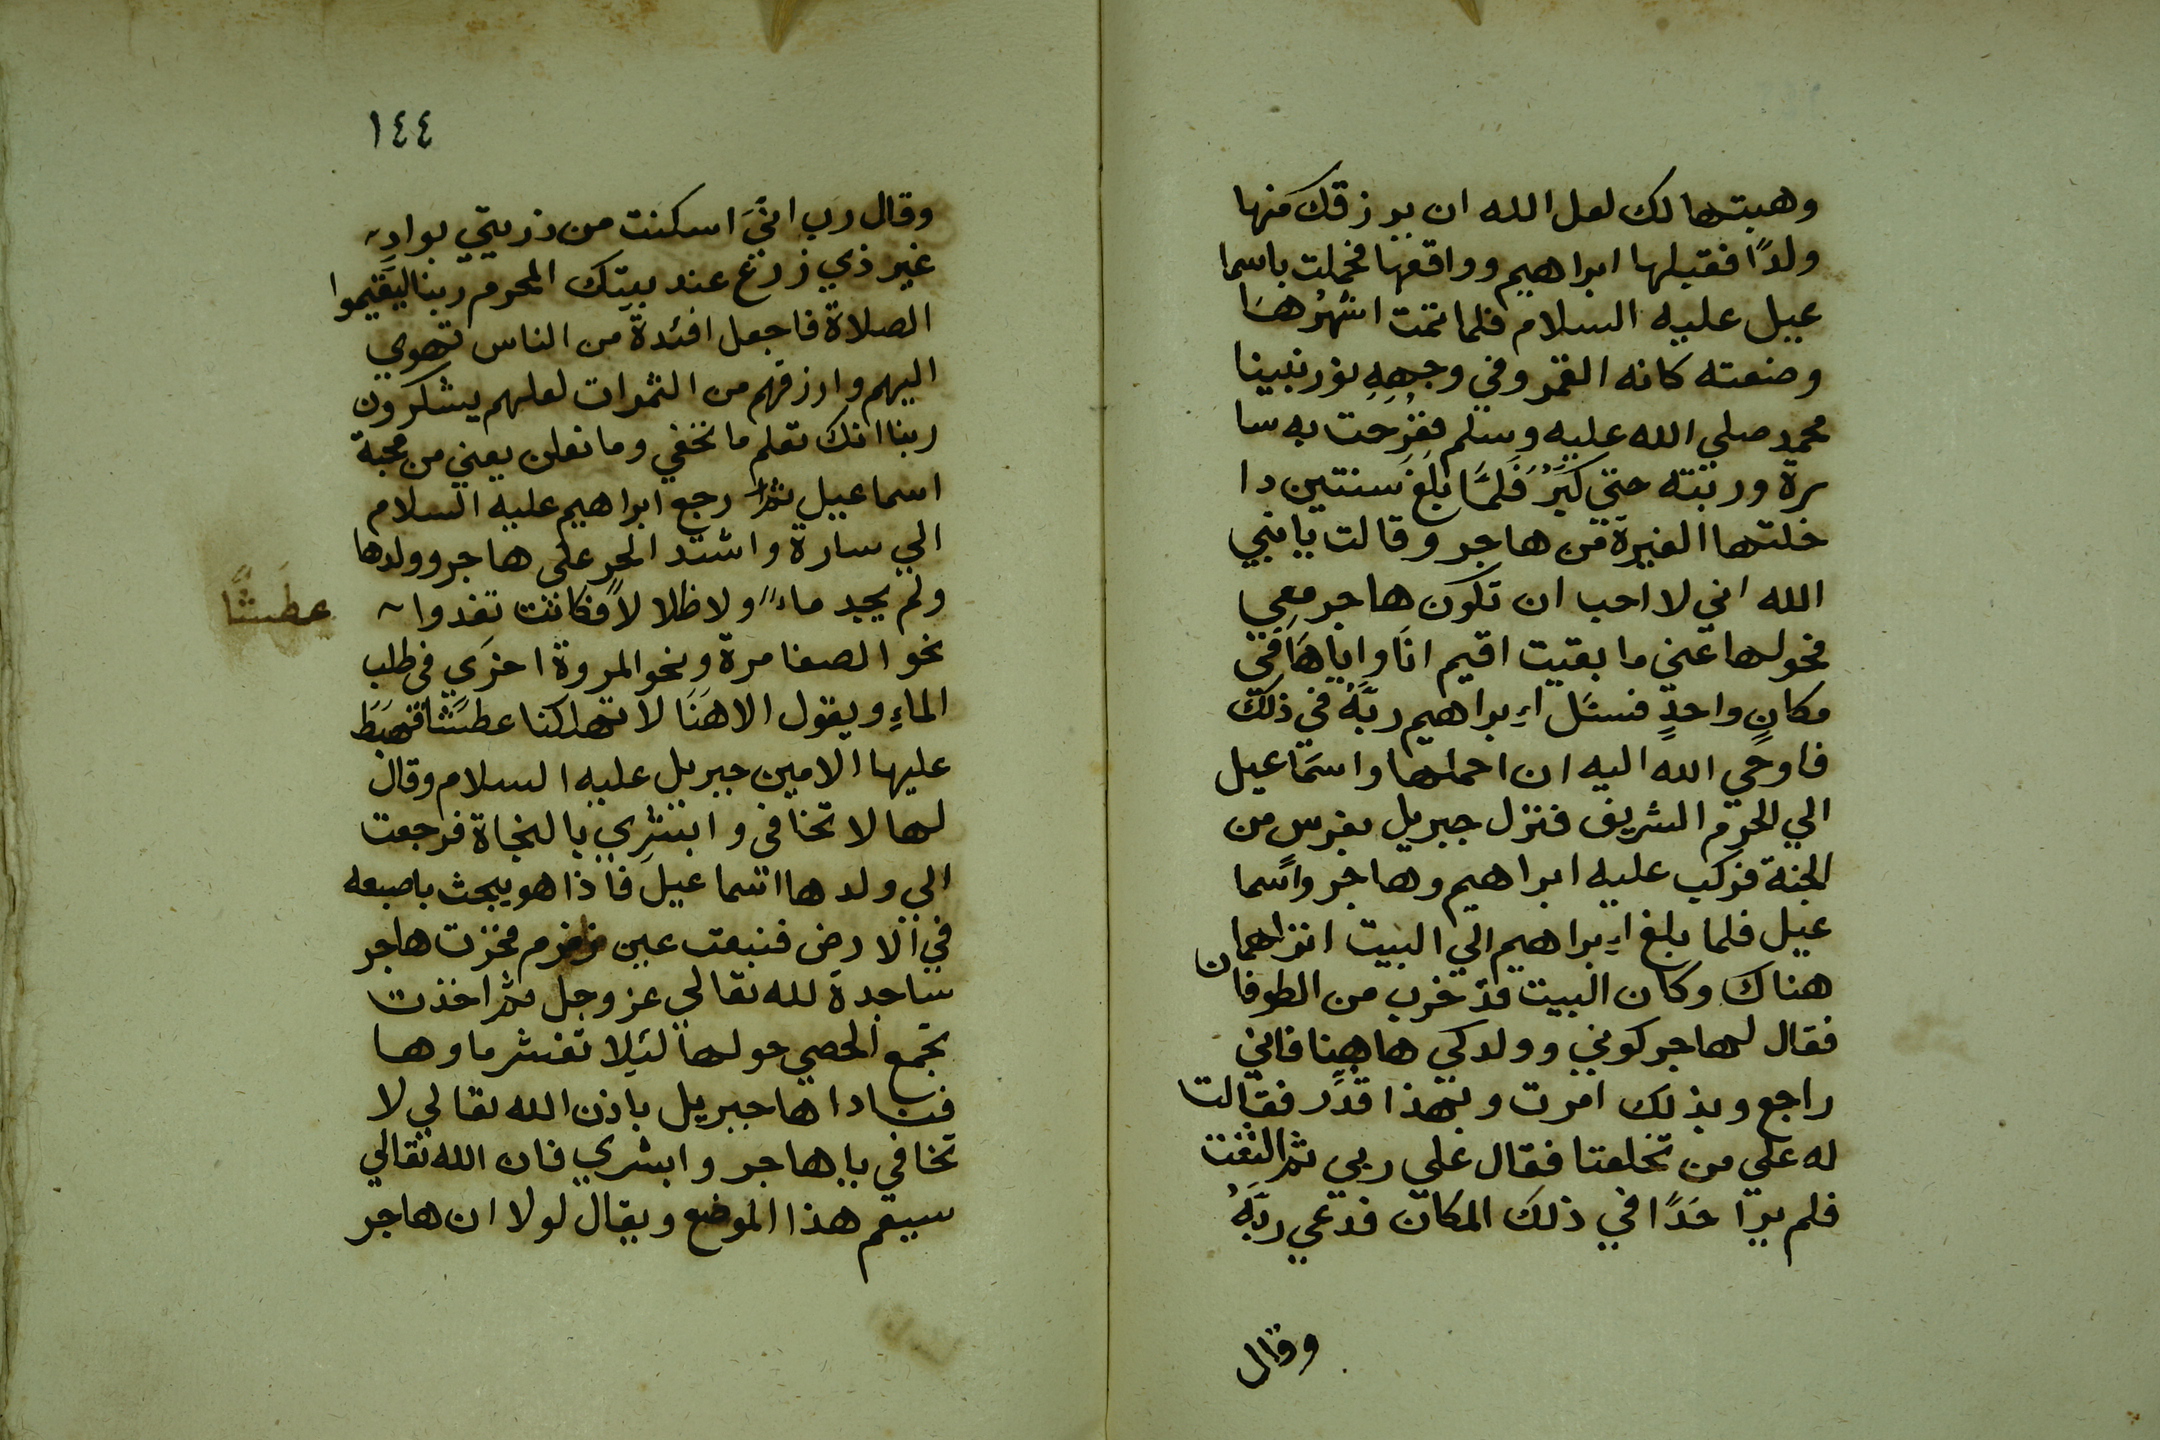 وهبتها لك لعل الله ان يرزقك منها
ولدًا فقبلها ابراهيم وواقعها فحملت باسما
عيل عليه السلام فلما تمت اشهرها
وضعته كانه القمر وفي وجهه نور نبينا
محمد صلي الله عليه وسلم ففرحت به سا
رة وربته حتي كبر فلما بلغ سنتين دا
خلتها الغيرة من هاجر وقالت يا نبي
الله اني لا احب ان تكون هاجر معي
فحولها عني ما بقيت اقيم انا واياها في
مكانٍ واحدٍ فسئل ابراهيم ربَّهُ في ذلك
فاوحي الله اليه ان احملها واسماعيل
الي الحرم الشريف فنزل جبريل بفرس من
الجنة فركب عليه ابراهيم وهاجر واسما
عيل فلما بلغ ابراهيم الي البيت انزلهما
هناك وكان البيت قد خرب من الطوفان
فقال لهاجر كوني وولدكي هاهنا فاني
راجع وبذلك امرت وبهذا قدر فقالت
له علي من تخلفنا فقال علي ربي ثم التفت
فلم يرا حَدًا في ذلك المكان فدعي ربَّهُ
وقال
١٤٤
وقال رب انيَّ اسكنت من ذريتي بوادٍ
غير ذي زرع عند بيتك المحرم ربنا ليقيموا
الصلاة فاجعل افئدة من الناس تهوي
اليهم وارزقهم من الثمرات لعلهم يشكرون
ربنا انك تعلم ما نخفي وما نعلن يعني من محبة
اسماعيل ثم رجع ابراهيم عليه السلام
الي سارة واشتد الحر علي هاجر وولدها
ولم يجد ماءً ولا ظلا لاً فكانت تغدوا
نحو الصفا مرة ونحو المروة اخرَي في طلب
الماءِ ويقول الاهَنَا لا تهلكنا عطشًا فهبَطَ
عطَشًا
عليها الامين جبريل عليه السلام وقال
لها لا تخافي وابشري بالنجاة فرجعت
الي ولدها اسماعيل فاذا هو يبحث باصبعه
في الارض فنبعت عين زمزم فخرت هاجر
ساجدة لله تعالي عز وجل ثم اخذت
تجمع الحصي حولها ليلا تفشر ماوها
فناداها جبريل باذن الله تعالي لا
تخافي يا هاجر وابشري فان الله تعالي
سيعم هذا الموضع ويقال لولا ان هاجر